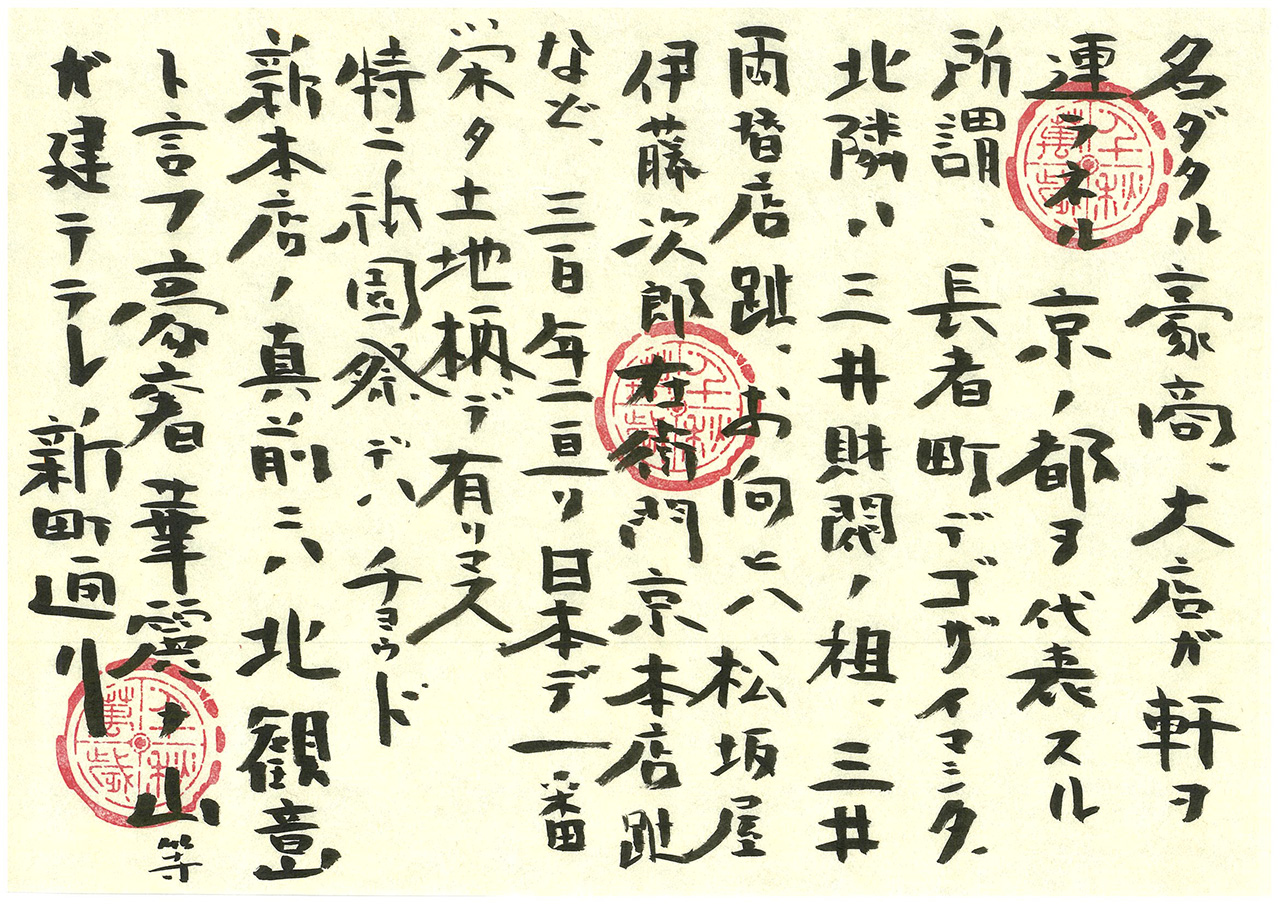 名ダタル豪商、大店ガ軒ヲ
連ラネル京ノ都ヲ代表スル
所謂、長者町デゴザイマシタ。
北隣ハ三井財閥ノ祖、三井
両替店趾、お向ヒハ松坂屋
伊藤次郎左衛門京本店趾
など、三百年ニ亘リ日本デ一番
栄タ土地柄デ有リマス
特ニ祇園祭デハチョウド
新本店ノ真前ニハ北観音山
ト言フ豪奢華麗ナ山等
ガ建テラレ新町通リ
千秋萬歳
千秋萬歳
千秋萬歳